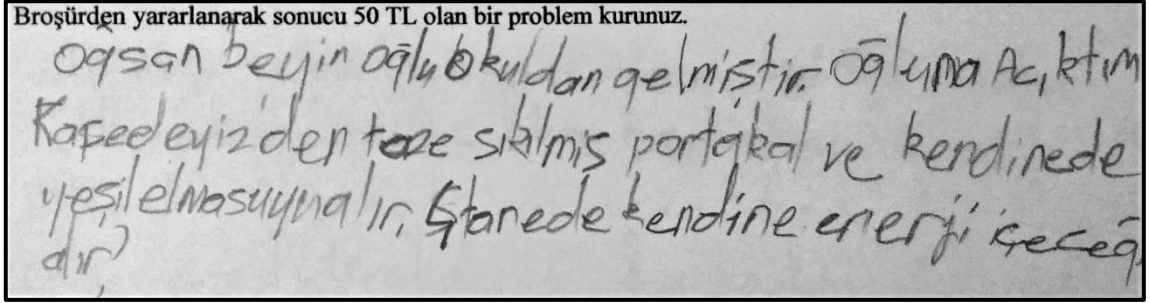 Broşürden yararlanarak sonucu 50 TL olan bir problem kurunuz.
Oğsan beyin oğlu okuldan gelmiştir. Oğluna Acıktım
Kafedeyiz'den taze sıkılmış portakal ve kendinede
yeşil elmasuyu alır. 5 tanede kendine enerji içeceğ
dır?